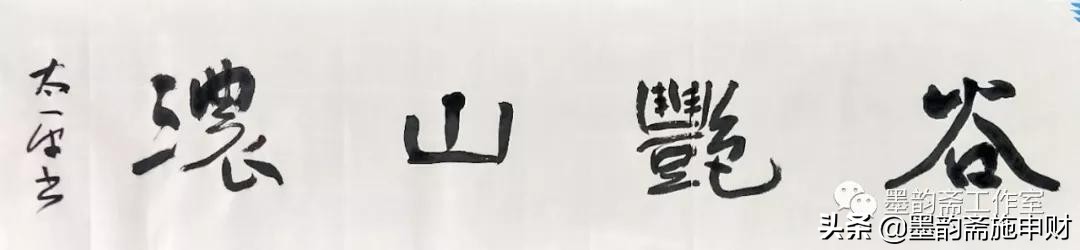 谷艷山濃
太一书
墨韵斋工作室
头条 @墨韵斋施申财